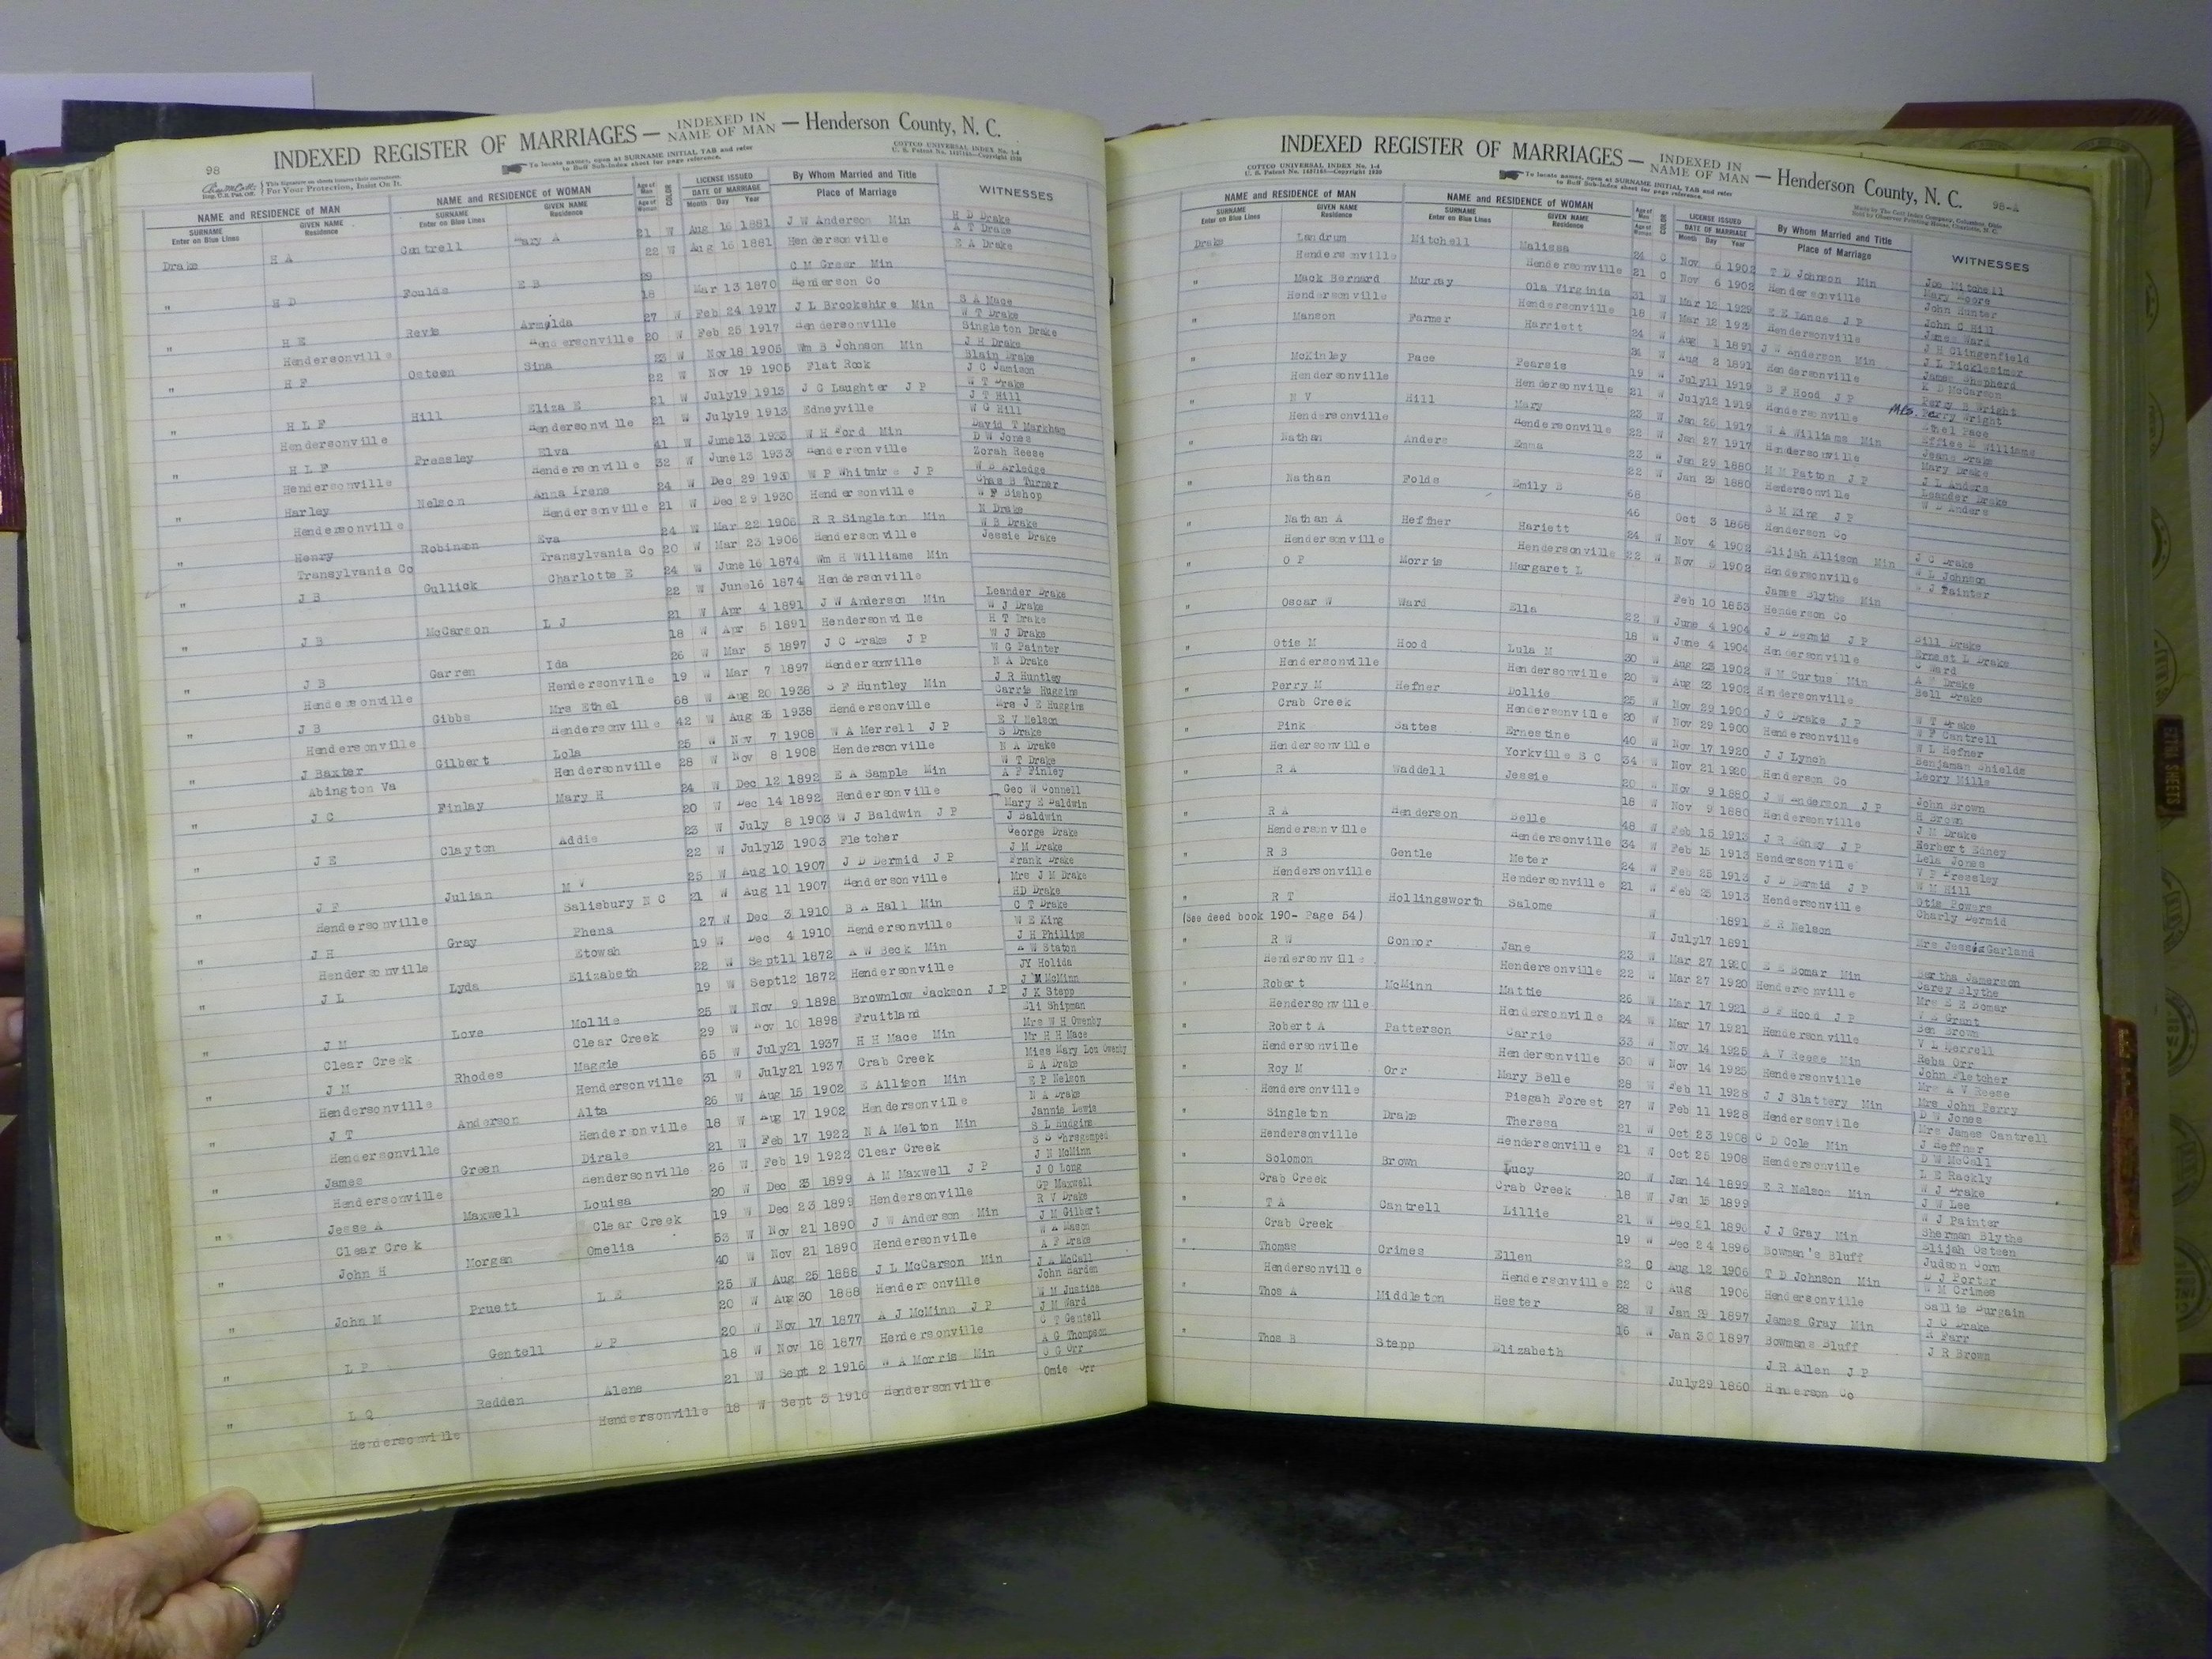 98
INDEXED REGISTER OF MARRIAGES — INDEXED IN NAME OF MAN — Henderson County, N. C.
This Signature on sheets insures their correctness. For Your Protection, Insist On It.
To locate names, open at SURNAME INITIAL TAB and refer to Buff Sub-Index sheet for page reference.
COTTCO UNIVERSAL INDEX No. 1-4
NAME and RESIDENCE OF MAN NAME and RESIDENCE OF WOMAN Age of Man Age of Woman COLOR LICENSE ISSUED DATE OF MARRIAGE By Whom Married and Title Place of Marriage WITNESSES
SURNAME Enter on Blue Lines GIVEN NAME Residence SURNAME Enter on Blue Lines GIVEN NAME Residence Month Day Year
Drake H A Cantrell Mary A 21 W Aug 16 1881 J W Anderson Min H D Drake
22 W Aug 16 1881 Hendersonville A T Drake
E A Drake
" H D Foulds E B 29 C M Greer Min
18 Mar 13 1870 Henderson Co
" H E Revis Armelda 27 W Feb 24 1917 J L Brookshire Min S A Mace
Hendersonville Hendersonville 20 W Feb 25 1917 Hendersonville W T Drake
Singleton Drake
" H F Osteen Sina 23 W Nov 18 1905 Wm B Johnson Min J H Drake
22 W Nov 19 1905 Flat Rock Blain Drake
J C Jamison
" H L F Hill Eliza E 21 W July 19 1913 J C Laughter J P W T Drake
Hendersonville Hendersonville 21 W July 19 1913 Edneyville J T Hill
W G Hill
" H L F Pressley Elva 41 W June 13 1933 W H Ford Min David T Markham
Hendersonville Hendersonville 32 W June 13 1933 Hendersonville D W Jones
Zorah Reese
" Harley Nelson Anna Irene 24 W Dec 29 1930 W P Whitmire J P W B Arledge
Hendersonville Hendersonville 21 W Dec 29 1930 Hendersonville Chas B Turner
W F Bishop
" Henry Robinson Eva 24 W Mar 22 1906 R R Singleton Min N Drake
Transylvania Co Transylvania Co 20 W Mar 23 1906 Hendersonville W B Drake
Jessie Drake
" J B Gullick Charlotte E 24 W June 16 1874 Wm H Williams Min
22 W June 16 1874 Hendersonville
" J B McCarson L J 21 W Apr 4 1891 J W Anderson Min Leander Drake
18 W Apr 5 1891 Hendersonville W J Drake
H T Drake
" J B Garren Ida 26 W Mar 5 1897 J C Drake J P W J Drake
Hendersonville Hendersonville 19 W Mar 7 1897 Hendersonville W G Painter
N A Drake
" J B Gibbs Mrs Ethel 68 W Aug 20 1938 S F Huntley Min J R Huntley
Hendersonville Hendersonville 42 W Aug 1938 Hendersonville Carrie Huggins
Mrs J E Huggins
" J Baxter Gilbert Lola 25 W Nov 7 1908 W A Merrell J P E V Nelson
Abington Va Hendersonville 28 W Nov 8 1908 Hendersonville S Drake
N A Drake
" J C Finlay Mary H 24 W Dec 12 1892 E A Sample Min W T Drake
20 W Dec 14 1892 Hendersonville A F Finley
Geo W Connell
" J E Clayton Addie 23 W July 8 1903 W J Baldwin J P Mary E Baldwin
22 W July 13 1903 Fletcher J Baldwin
George Drake
" J F Julian M V 25 W Aug 10 1907 J D Dermid J P J M Drake
Hendersonville Salisbury N C 21 W Aug 11 1907 Hendersonville Frank Drake
Mrs J M Drake
" J H Gray Phena 27 W Dec 3 1910 B A Hall Min HD Drake
Hendersonville Etowah 19 W Dec 4 1910 Hendersonville C T Drake
W E King
" J L Lyda Elizabeth 22 W Sept 11 1872 A W Beck Min J H Phillips
19 W Sept 12 1872 Hendersonville A W Staton
JY Holida
" J M Love Mollie 25 W Nov 9 1898 Brownlow Jackson J P J M McMinn
Clear Creek Clear Creek 29 W Nov 10 1898 Fruitland J K Stepp
Eli Shipman
" J M Rhodes Maggie 65 W July 21 1937 H H Mace Min Mrs W H Owenby
Hendersonville Hendersonville 31 W July 21 1937 Crab Creek Mr H H Mace
Miss Mary Lou Owenby
" J T Anderson Alta 26 W Aug 15 1902 E Allison Min E A Drake
Hendersonville Hendersonville 18 W Aug 17 1902 Hendersonville E P Nelson
N A Drake
" James Green Dirale 21 W Feb 17 1922 N A Melton Min Jannie Lewis
Hendersonville Hendersonville 26 W Feb 19 1922 Clear Creek S L Hudgins
" Jesse A Maxwell Louisa 20 W Dec 23 1899 A M Maxwell J P J N McMinn
Clear Creek Clear Creek 19 W Dec 23 1899 Hendersonville J O Long
GP Maxwell
" John H Morgan Omelia 53 W Nov 21 1890 J W Anderson Min R V Drake
40 W Nov 21 1890 Hendersonville J M Gilbert
W A Mason
" John M Pruett L E 25 W Aug 25 1888 J L McCarson Min A F Drake
20 W Aug 30 1888 Hendersonville J A McCall
John Harden
" L P Gentell D P 20 W Nov 17 1877 A J McMinn J P W M Justice
18 W Nov 18 1877 Hendersonville J M Ward
C T Gentell
" L Q Redden Alene 21 W Sept 2 1916 W A Morris Min A G Thompson
Hendersonville Hendersonville 18 W Sept 3 1916 Hendersonville O G Orr
Omie Orr
INDEXED REGISTER OF MARRIAGES — INDEXED IN NAME OF MAN — Henderson County, N. C.
98-A
COTTCO UNIVERSAL INDEX No. 1-4
To locate names, open at SURNAME INITIAL TAB and refer to Buff Sub-Index sheet for page reference.
NAME and RESIDENCE OF MAN NAME and RESIDENCE OF WOMAN Age of Man Age of Woman COLOR LICENSE ISSUED DATE OF MARRIAGE By Whom Married and Title Place of Marriage WITNESSES
SURNAME Enter on Blue Lines GIVEN NAME Residence SURNAME Enter on Blue Lines GIVEN NAME Residence Month Day Year
Drake Landrum Mitchell Malissa 24 C Nov 6 1902 T D Johnson Min Joe Mitchell
Hendersonville Hendersonville 21 C Nov 6 1902 Hendersonville Mary Moore
John Hunter
" Mack Bernard Murray Ola Virginia 31 W Mar 12 1929 E E Lance J P John C Hill
Hendersonville Hendersonville 18 W Mar 12 1929 Hendersonville James Ward
J H Clingenfield
" Manson Farmer Harriett 24 W Aug 1 1891 J W Anderson Min J L Picklesimer
W Aug 2 1891 Hendersonville James Shepherd
K D McCarson
" McKinley Pace Pearsie 19 W July 11 1919 B F Hood J P Perry B Wright
Hendersonville Hendersonville 21 W July 12 1919 Hendersonville Mrs. Perry Wright
Ethel Pace
" N V Hill Mary 23 W Jan 26 1917 W A Williams Min Effiee L Williams
Hendersonville Hendersonville 22 W Jan 27 1917 Hendersonville Jeane Drake
Mary Drake
" Nathan Anders Emma 23 W Jan 29 1880 M M Patton J P J L Anders
22 W Jan 29 1880 Hendersonville Leander Drake
W D Anders
" Nathan Folds Emily B 68 S M King J P
46 Oct 3 1868 Henderson Co
" Nathan A Heffner Hariett 24 W Nov 4 1902 Elijah Allison Min J C Drake
Hendersonville Hendersonville 22 W Nov 1902 Hendersonville W L Johnson
W J Painter
" O P Morris Margaret L James Blythe Min
Feb 10 1853 Henderson Co
" Oscar W Ward Ella 22 W June 4 1904 J D Dermid J P Bill Drake
18 W June 4 1904 Hendersonville Ernest L Drake
C Ward
" Otis M Hood Lula M 30 W Aug 23 1902 W M Curtus Min A F Drake
Hendersonville Hendersonville 20 W Aug 23 1902 Hendersonville Bell Drake
" Perry M Hefner Dollie 25 W Nov 29 1900 J C Drake J P W T Drake
Crab Creek Hendersonville 20 W Nov 29 1900 Hendersonville W F Cantrell
W L Hefner
" Pink Sattes Ernestine 40 W Nov 17 1920 J J Lynch Benjaman Shields
Hendersonville Yorkville S C 34 W Nov 21 1920 Henderson Co Leory Mills
" R A Waddell Jessie 20 W Nov 9 1880 J W Anderson J P John Brown
18 W Nov 9 1880 Hendersonville H Brown
J M Drake
" R A Henderson Belle 48 W Feb 15 1913 J R Edney J P Herbert Edney
Hendersonville Hendersonville 34 W Feb 15 1913 Hendersonville Lela Jones
V B Pressley
" R B Gentle Meter 24 W Feb 25 1913 J D Dermid J P W M Hill
Hendersonville Hendersonville 21 W Feb 25 1913 Hendersonville Otis Powers
Charly Dermid
" R T Hollingsworth Salome W 1891 E R Nelson
(See deed book 190- Page 54) W July 17 1891 Mrs Jessie Garland
" R W Connor Jane 23 W Mar 27 1920 E E Bomar Min Bertha Jamerson
Hendersonville Hendersonville 22 W Mar 27 1920 Hendersonville Carey Blythe
Mrs E E Bomar
" Robert McMinn Mattie 26 W Mar 17 1921 B F Hood J P V B Grant
Hendersonville Hendersonville 24 W Mar 17 1921 Hendersonville Ben Brown
V L Merrell
" Robert A Patterson Carrie 33 W Nov 14 1925 A V Reese Min Reba Orr
Hendersonville Hendersonville 30 W Nov 14 1925 Hendersonville John Fletcher
Mrs A V Reese
" Roy M Orr Mary Belle 28 W Feb 11 1928 J J Slattery Min Mrs John Perry
Hendersonville Pisgah Forest 27 W Feb 11 1928 Hendersonville D W Jones
Mrs James Cantrell
" Singleton Drake Theresa 21 W Oct 23 1908 C D Cole Min J Heffner
Hendersonville Hendersonville 21 W Oct 25 1908 Hendersonville D W McCall
L E Rackly
" Solomon Brown Lucy 20 W Jan 14 1899 E R Nelson Min W J Drake
Crab Creek Crab Creek 18 W Jan 15 1899 J W Lee
W J Painter
" T A Cantrell Lillie 21 W Dec 21 1896 J J Gray Min Sherman Blythe
Crab Creek 19 W Dec 24 1896 Bowman's Bluff Elijah Osteen
Judson Corn
" Thomas Crimes Ellen 22 C Aug 12 1906 T D Johnson Min D J Porter
Hendersonville Hendersonville 22 C Aug 1906 Hendersonville W M Crimes
Sallie Durgain
" Thos A Middleton Hester 28 W Jan 29 1897 James Gray Min J C Drake
16 W Jan 30 1897 Bowmans Bluff R Farr
J R Brown
" Thos B Stepp Elizabeth J R Allen J P
July 29 1860 Henderson Co
EXTRA SHEETS